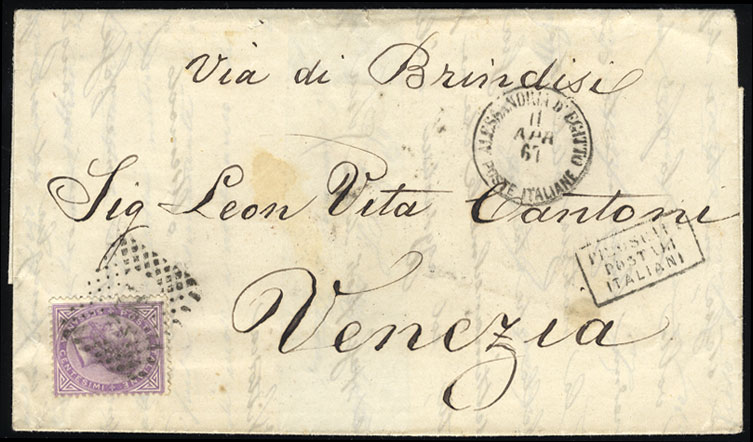 Via di Brindisi
ALESSANDRIA D'EGITTO
11
APR
67
POSTE ITALIANE
Sig Leon Vita Cantoni
PIROSCAFI
POSTALI
ITALIANI
Venezia
CENTESIMI